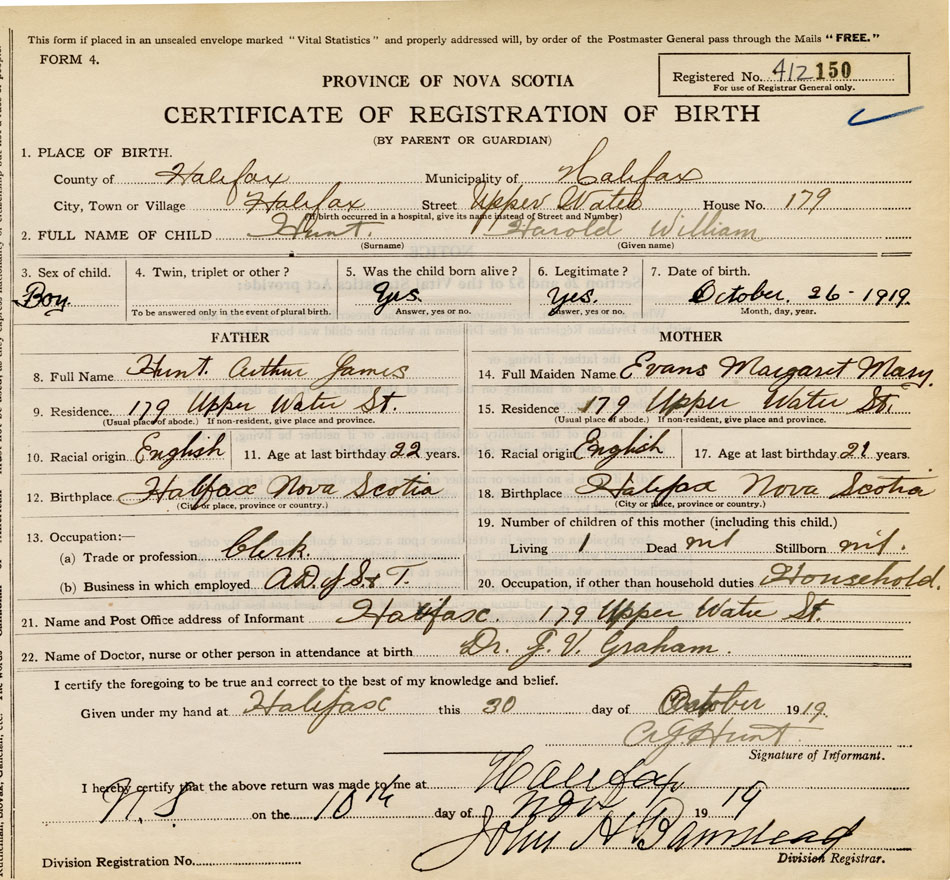 This form if placed in an unsealed envelope marked "Vital Statistics" and properly addressed will, by order of the Postmaster General pass through the Mails "FREE."
FORM 4.
Registered No. 412150
For use of Registrar General only.
PROVINCE OF NOVA SCOTIA
CERTIFICATE OF REGISTRATION OF BIRTH
(BY PARENT OR GUARDIAN)
1. PLACE OF BIRTH.
County of Halifax Municipality of Halifax
City, Town or Village Halifax Street Upper Water House No. 179
(If birth occurred in a hospital, give its name instead of Street and Number)
2. FULL NAME OF CHILD Hunt. Harold William
(Surname) (Given name)
3. Sex of child. 4. Twin, triplet or other? 5. Was the child born alive? 6. Legitimate? 7. Date of birth.
Boy. Yes. Yes. October. 26 - 1919.
To be answered only in the event of plural birth. Answer, yes or no. Answer, yes or no. Month, day, year.
FATHER MOTHER
8. Full Name Hunt. Arthur James 14. Full Maiden Name Evans Margaret Mary.
9. Residence. 179 Upper Water St. 15. Residence 179 Upper Water St.
(Usual place of abode.) If non-resident, give place and province. (Usual place of abode.) If non-resident, give place and province.
10. Racial origin English 11. Age at last birthday 22 years. 16. Racial origin English 17. Age at last birthday 21 years.
12. Birthplace Halifax Nova Scotia 18. Birthplace Halifax Nova Scotia
(City or place, province or country.) (City or place, province or country.)
13. Occupation:— 19. Number of children of this mother (including this child.)
(a) Trade or profession Clerk. Living 1 Dead nil Stillborn nil.
(b) Business in which employed A.D. of S & T. 20. Occupation, if other than household duties Household.
21. Name and Post Office address of Informant Halifax. 179 Upper Water St.
22. Name of Doctor, nurse or other person in attendance at birth Dr. J. V. Graham.
I certify the foregoing to be true and correct to the best of my knowledge and belief.
Given under my hand at Halifax this 30 day of October 1919.
A.J. Hunt
Signature of Informant.
I hereby certify that the above return was made to me at Halifax
N.S on the 10th day of Nov 1919
John A Barnstead
Division Registration No. Division Registrar.